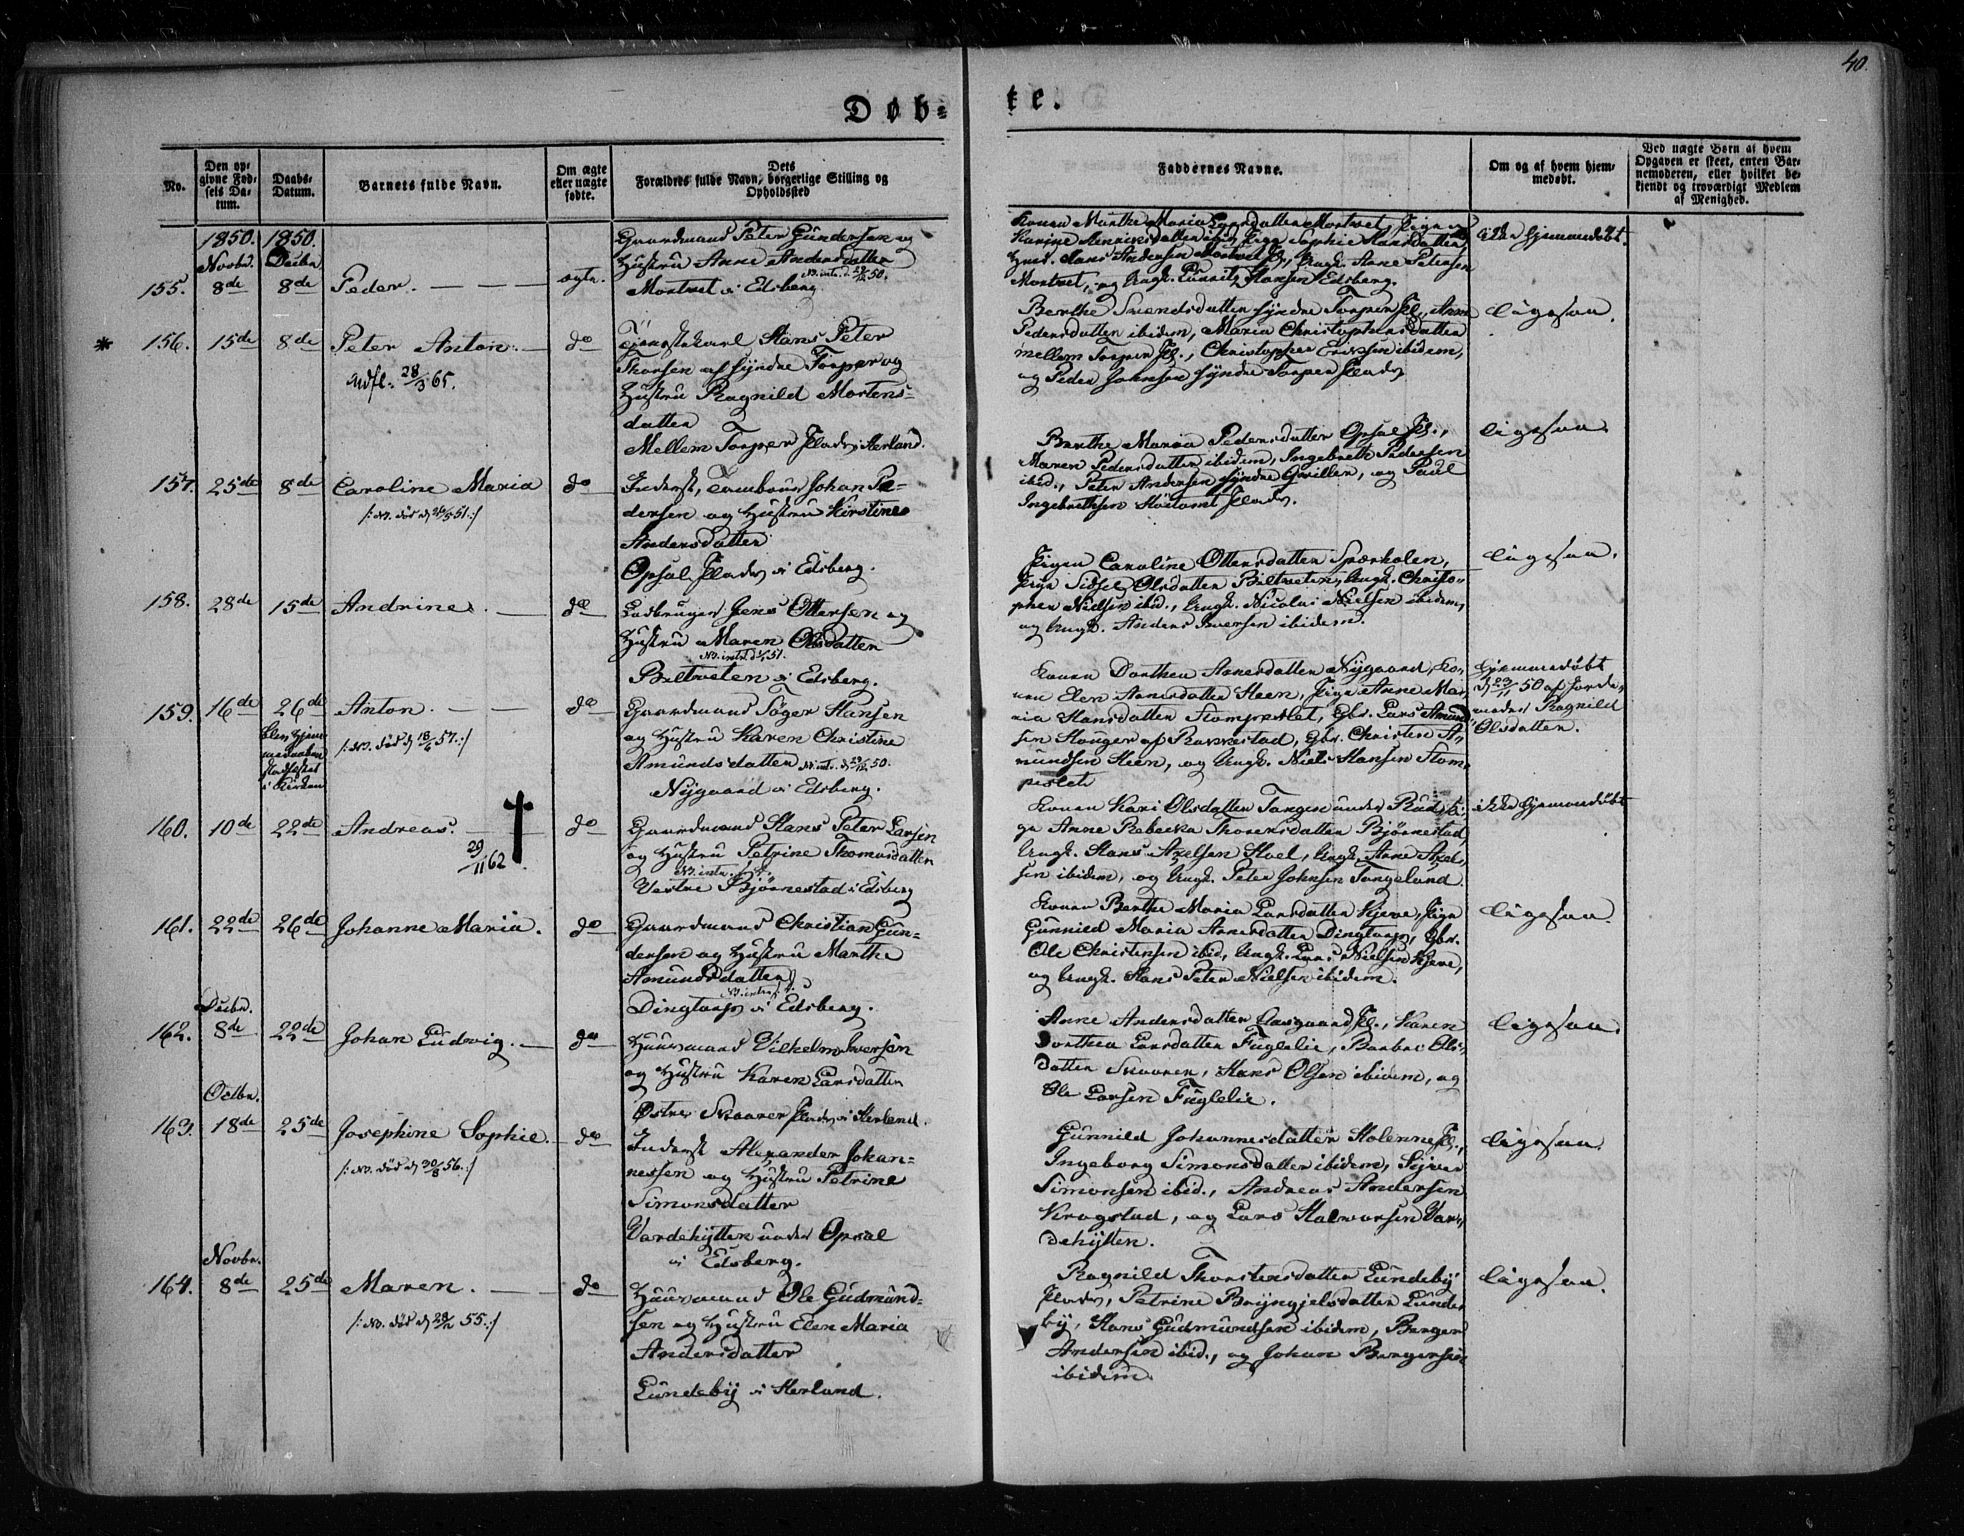 40.
Døb-
te.
No.
Den op-
givne Fød-
sels Da-
tum.
Daabs-
Datum.
Barnets fulde Navn.
Om ægte
eller uægte
fødte.
Dets
Forældres fulde Navn, borgerlige Stilling og
Opholdssted
Faddernes Navne.
Om og af hvem hjem-
medøbt.
Ved uægte Børn af hvem
Opgaven er skeet, enten Bar-
nemoderen, eller hvilket be-
kjendt og troværdigt Medlem
af Menighed.
1850. 1850.
Novbr. Decbr.
155. 8de 8de Peder. ægte.
Gaardmand Peter Gundersen og
Hustru Anne Andersdatter
Mortvet i Edsberg.
Karine Henriksdatter ibid, Pige Sophie Hansdatter
Hans Andersen Mortvet, Ungk. Hans Petersen
Mortvet, og Ungk. Lauritz Hansen Edsberg.
ikke hjemmedøbt.
* 156. 15de 8de Peter Anton. do
Udfl. 28/3 65.
Tjenestekarl Hans Peter
Thorsen af syndre Torper og
Hustru Ragnild Mortens-
datter
Mellem Torper Flades i Herland.
Berthe Svendsdatter syndre Torper Fl., Anne
Pedersdatter ibidem, Maria Christophersdatter
mellem Torper Fl., Christopher Eriksen ibidem,
og Peder Johnsen syndre Torper Flades
ligesaa.
157. 25de 8de Caroline Maria do
/: NB. død d 51. :/
Inderst, Tambour Johan Pe-
dersen og Hustru Kirstine
Andersdatter
Opsal Flades i Edsberg.
Berthe Maria Pedersdatter Opsal Fl.,
Maren Pedersdatter ibidem, Ingebreth Pedersen
ibid., Peter Andersen syndre Grillen, og Paul
Ingebrethsen Flades.
ligesaa.
158. 28de 15de Andrine. do
Ladbruger Jens Ottersen og
Hustru Maren Olsdatter
Biltveten i Edsberg.
Pigen Caroline Ottersdatter Sparkolen,
Pige Sidsel Olsdatter Biltveten, Ungk. Christo-
pher Nielsen ibid., Ungk. Nicolai Nielsen ibidem,
og Ungk. Anders Iversen ibidem.
ligesaa.
159. 16de 26de Anton. do
/: NB. død d 18/6 57. :/
Gaardmand Tøger Hansen
og Hustru Karen Christine
Amundsdatter
Nygaard i Edsberg.
Konen Dorthea Arnesdatter Nygaard, Ko-
nen Elen Arnesdatter Heen, Pige Anne Ma-
ria Hansdatter Stomperslet, Gbr. Lars Amund-
sen Hauger af Rakkestad, Gbr. Christen A-
mundsen Heen, og Ungk. Niels Hansen Stom-
perslet
hjemmedøbt
d 23/11 50 af Jorde-
moder Ragnild
Olsdatter.
160. 10de 22de Andreas. do
29/11 62
Gaardmand Hans Peter Larsen
og Hustru Petrine Thomasdatter
Vestre Bjørnestad i Edsberg
Konen Kari Olsdatter Tangen under Rud, Pi-
ge Anne Rebecka Thoresdatter Bjørnestad,
Ungk. Hans Axelsen Hoel, Ungk. Arne Axel-
sen ibidem, og Ungk. Peter Johnsen Tangelund.
ikke hjemmedøbt
161. 22de 26de Johanne Maria. do
Gaardmand Christian Gun-
dersen og Hustru Marthe
Amundsdatter
Dingtorp i Edsberg.
Konen Berthe Maria Larsdatter Kjeve, Pige
Gunnild Maria Arnesdatter Dingtorp, Gbr.
Ole Christensen ibid, Ungk. Lars Nielsen Kjeve,
og Ungk. Hans Peter Nielsen ibidem.
ligesaa.
Decbr.
162. 8de 22de Johan Ludvig. do
Huusmand Vilhelm Iversen
og Hustru Karen Larsdatter
Østre Skaarer Flades i Herland.
Anne Andersdatter Aasgaard Fl., Karen
Dorthea Larsdatter Fuglelie, Barbro Ols-
datter Skaarer, Hans Olsen ibidem, og
Ole Larsen Fuglelie.
ligesaa.
Octbr.
163. 18de 25de Josephine Sophie. do
/: NB. død d 20/8 56. :/
Inderst Alexander Johan-
nessen og Hustru Petrine
Simonsdatter
Vardehytten under Opsal
i Edsberg.
Gunnild Johannesdatter Holene Fl.,
Ingeborg Simonsdatter ibidem, Syver
Simonsen ibid., Andreas Andersen
Kragstad, og Lars Halvorsen Var-
dehytten.
ligesaa.
Novbr.
164. 8de 25de Maren. do
/: NB. død d 55 :/
Huusmand Ole Gudmund-
sen og Hustru Elen Maria
Andersdatter
Lundeby i Herland.
Ragnild Thorstensdatter Lundeby
Flades, Petrine Bryngjelsdatter Lunde-
by, Hans Gudmundsen ibidem, Berger
Andersen ibid., og Johan Bergersen
ibidem.
ligesaa.